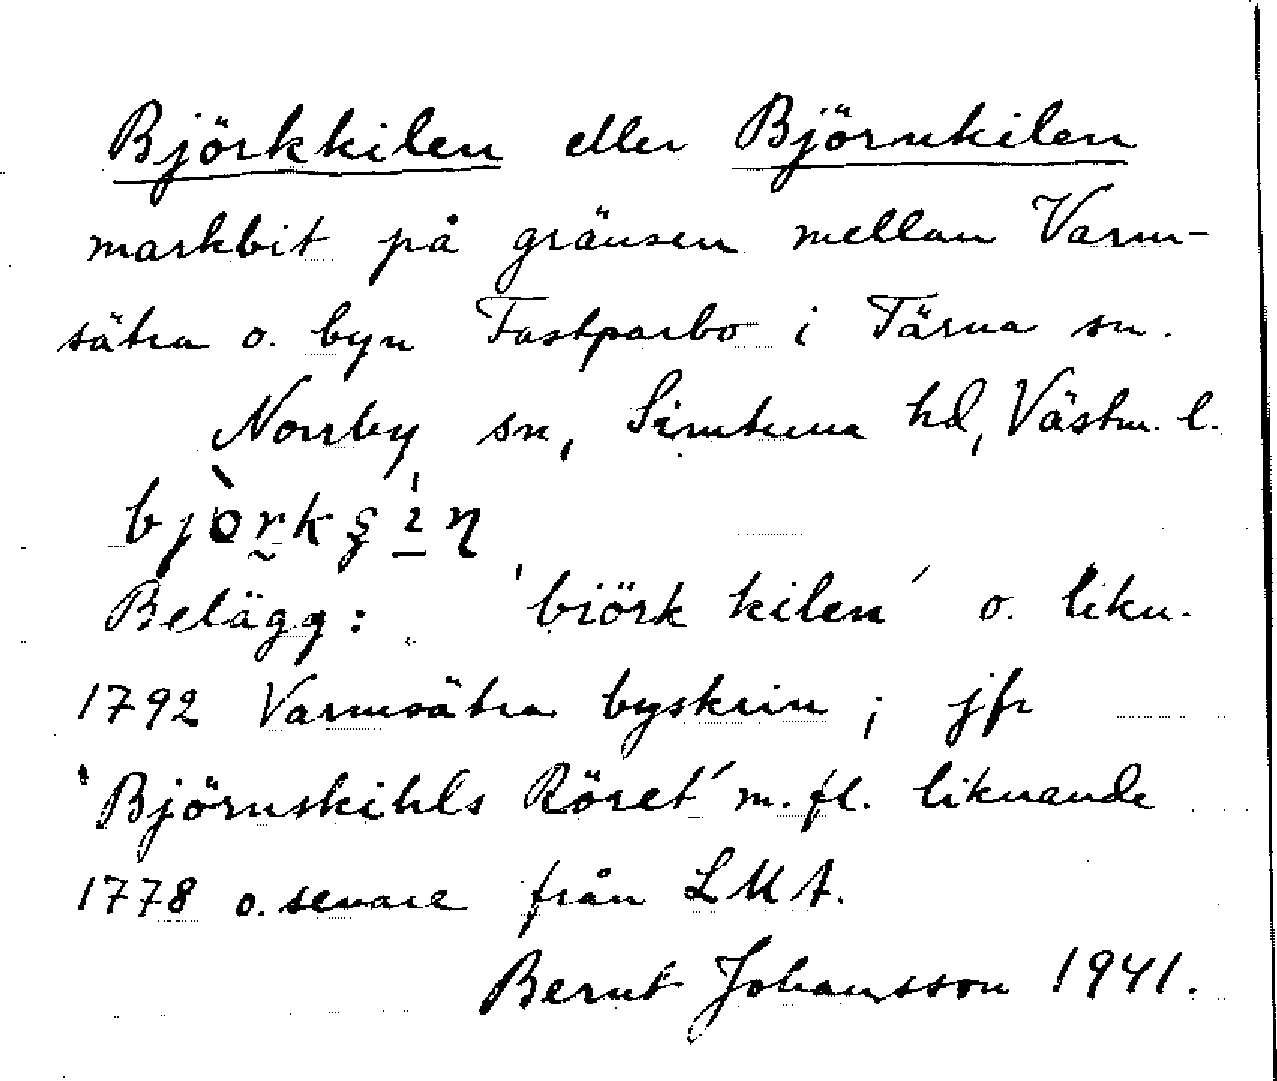 Björkkilen eller Björnkilen
markbit på gränsen mellan Varm-
sätra o. byn Fastparbo i Tärna sn.
Norrby sn, Simtuna hd, Västm. l.
Belägg: 'biörk kilen' o. likn.
1792 Varmsätra byskrin; jfr
'Björnskihls Röret' m. fl. liknande
1778 o. senare från LMA.
Bernt Johansson 1941.